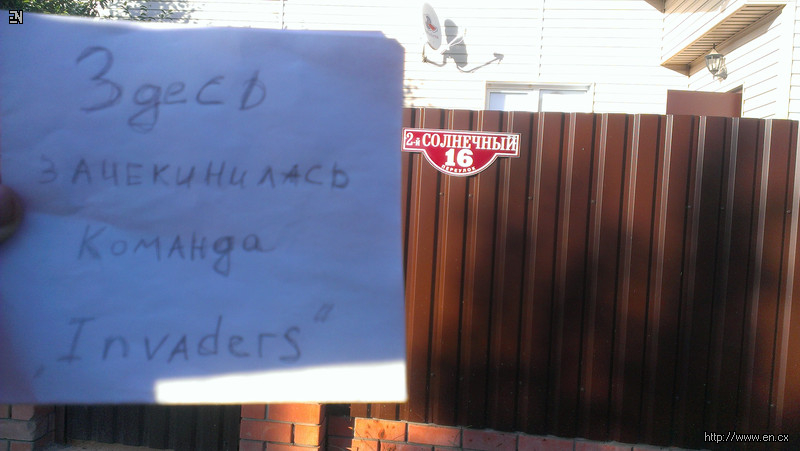 EN
Здесь
зачекинилась
команда
„Invaders“
2-й СОЛНЕЧНЫЙ
16
ПЕРЕУЛОК
http://www.en.cx